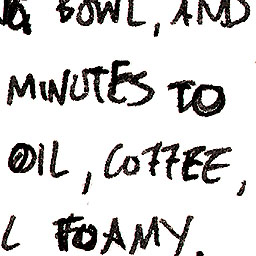 BOWL, AND
MINUTES TO
OIL, COFFEE,
L FOAMY.